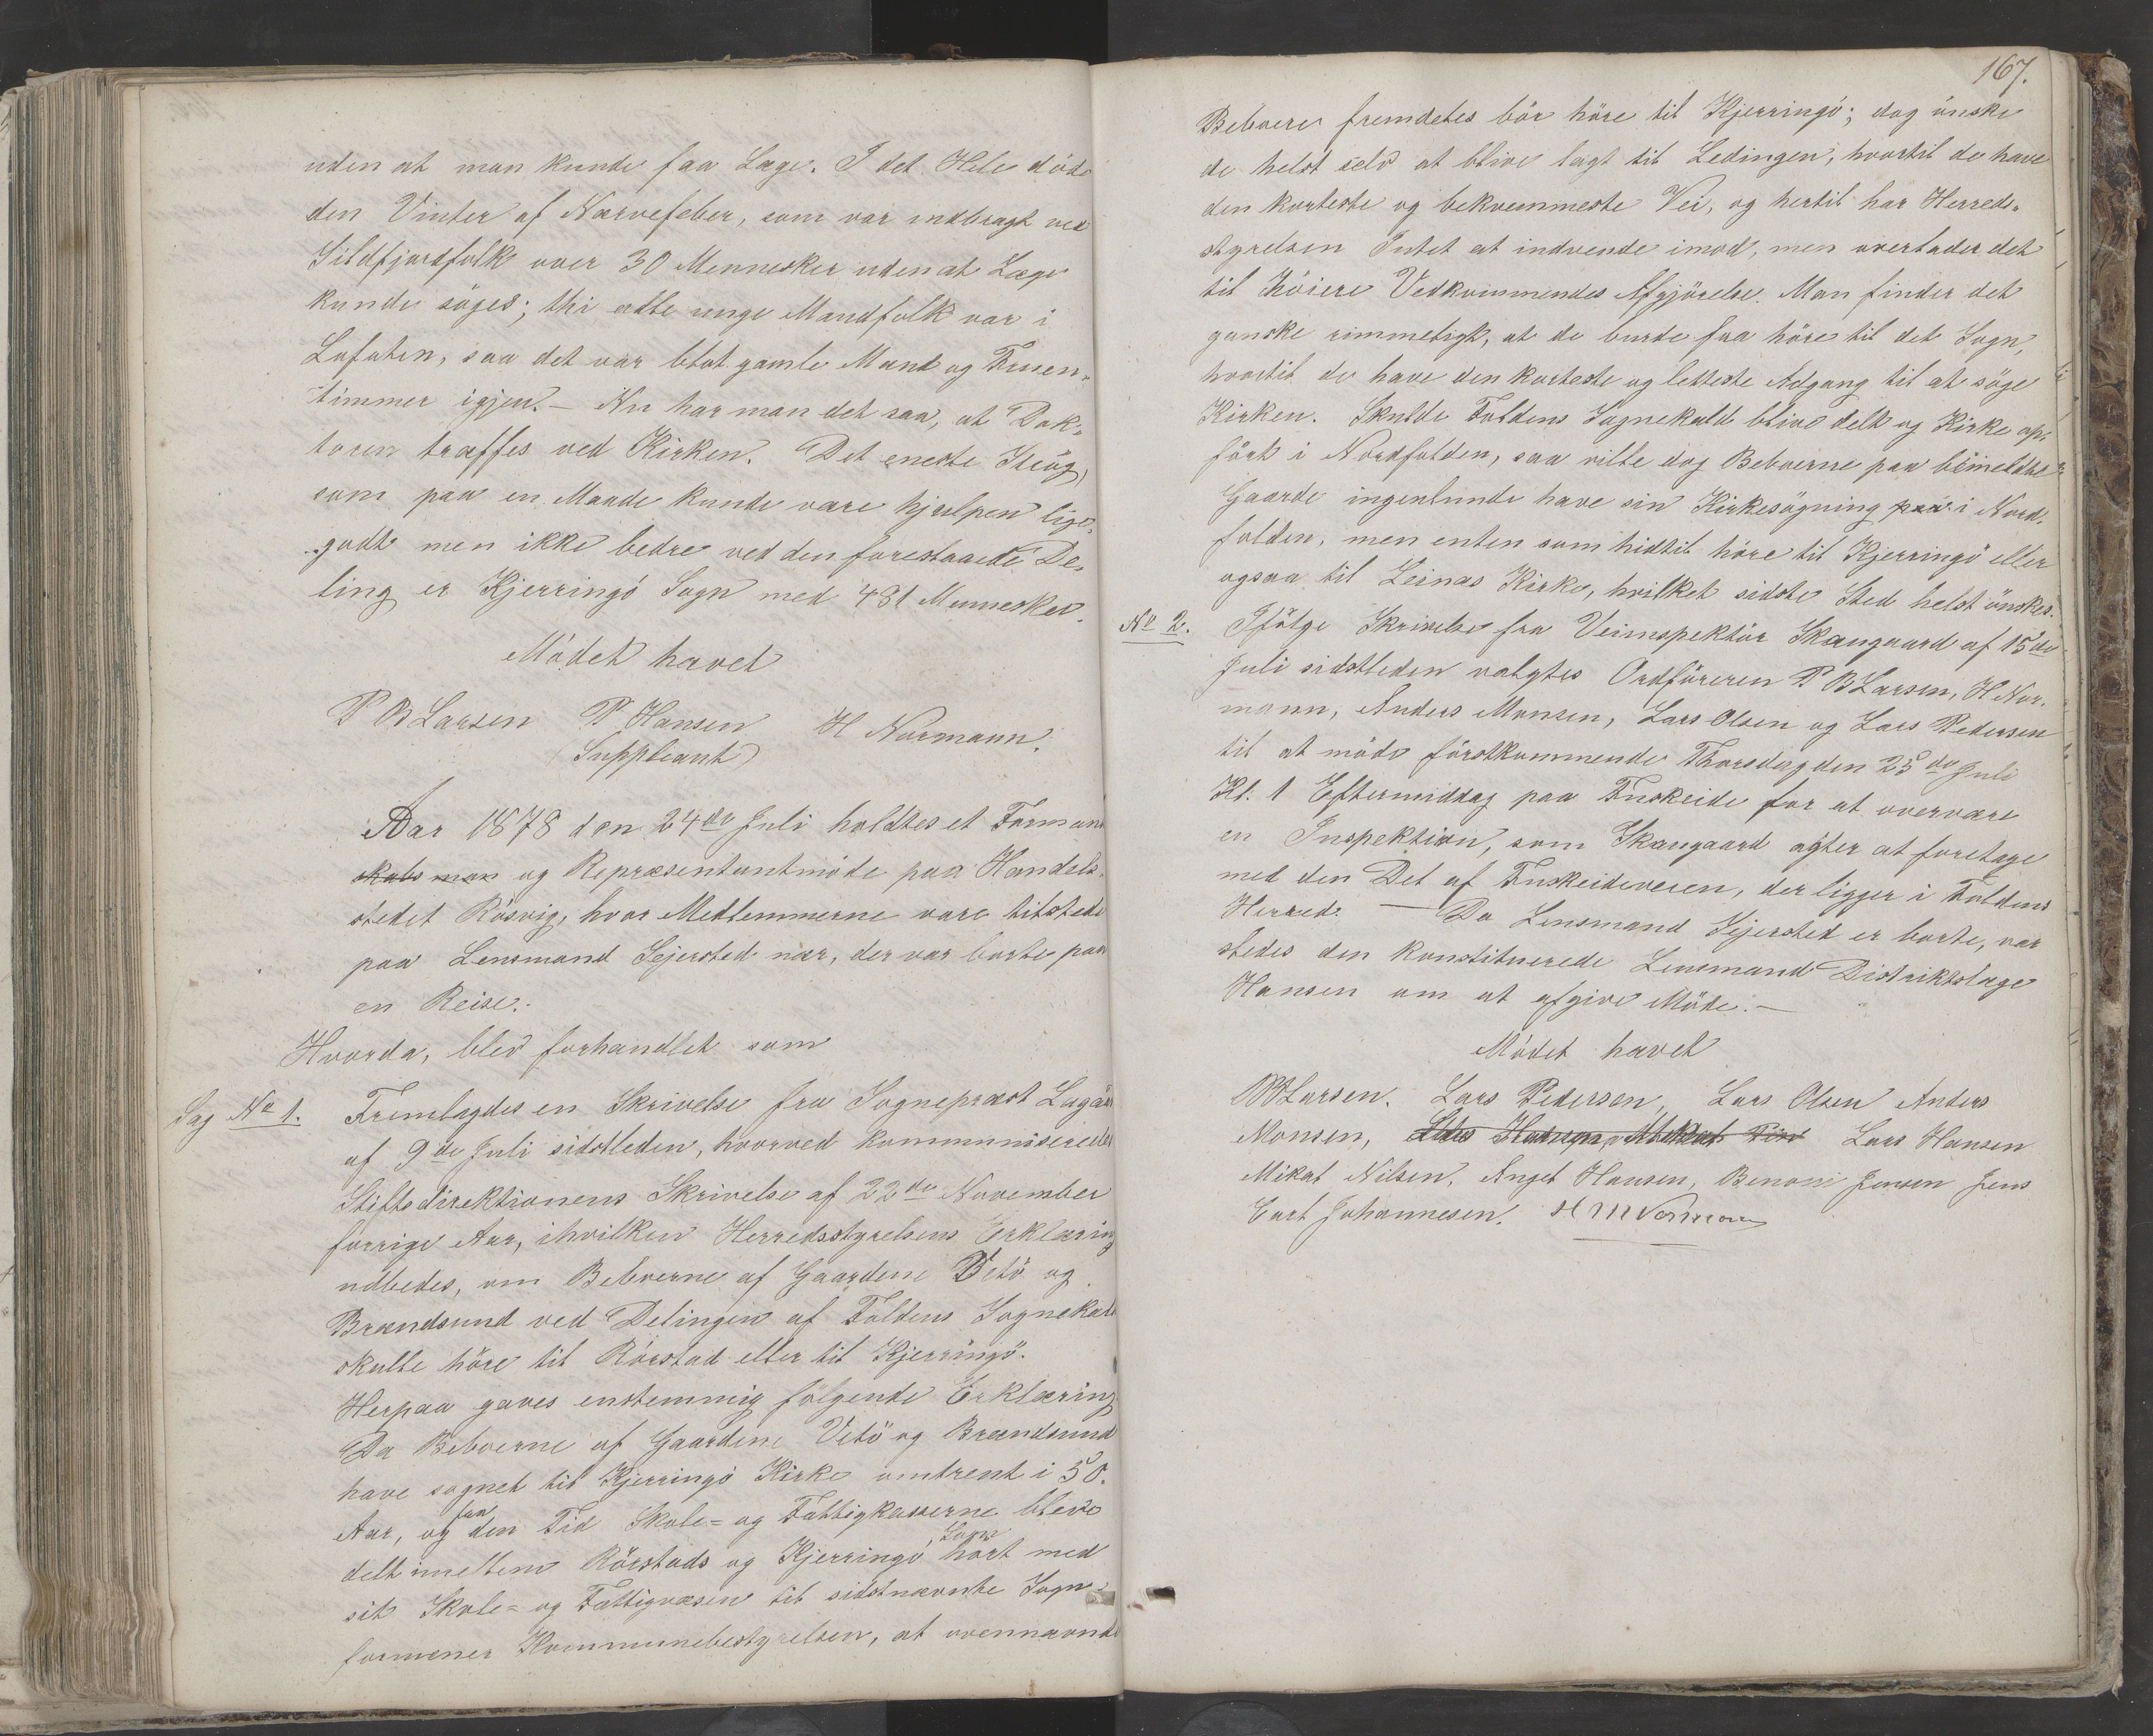 uden at man kunde faa Læge. I det Hele døde
den Vinter af Nærvefeber, som var indbragt ved
Sildfjordfolk over 30 Mennesker uden at Læge
kunde søges; thi alle unge Mandfolk var i
Lofoten, saa det var blot gamle Mænd og Fruen-
timmer igjen. — Nu har man det saa, at Dok-
toren træffes ved Kirken. Det eneste Strøg,
som paa en Maade kunde være hjulpen lige-
godt men ikke bedre ved den forestaaede De-
ling er Kjerringö Sogn med 481 Mennesker.
Mödet hævet
P B Larsen P. Hansen H Normann.
(Suppleant)
Aar 1878 den 24de Juli holdtes et Formand
skabs man og Repræsentantmöde paa Handels-
stedet Rösvig, hvor Medlemmerne vare tilstede
paa Lensmand Sejersted nær, der var borte paa
en Reise.
Hvorda, blev forhandlet som
Sag No 1. Fremlagdes en Skrivelse fra Sogneprest Lagård
af 9de Juli sidstleden, hvorved kommuniseredes
Stiftsdirektionens Skrivelse af 22de November
forrige Aar, ihvilken Herredsstyrelsens Erklæring
udbedes, om Beboerne af Gaardene Vetö og
Brændsund ved Delingen af Foldens Sognekald
skulle höre til Rörstad eller til Kjerringö.
Herpaa gaves enstemmig fölgende Erklæring
Da Beboerne af Gaardene Vetö og Brændsund
have sognet til Kjerringö Kirke omtrent i 50.
Aar, og fra den Tid Skole- og Fattigkasserne bleve
delt imellem Rörstads og Kjerringö Sogne hört med
sit Skole- og Fattigvæsen til sidstnævnte Sogn,
formener Kommunebestyrelsen, at ovennævnte
167.
Beboere fremdeles bör höre til Kjerringö; dog önske
de helst selv at blive lagt til Ledingen, hvortil de have
den korteste og bekvemmeste Vei, og hertil har Herreds-
styrelsen Intet at indvende imod, men overlader det
til Höiere Vedkommendes Afgjörelse. Man finder det
ganske rimmeligt, at de burde faa höre til det Sogn,
hvortil de have den korteste og letteste Adgang til at söge
Kirken. Skulde Foldens Sognekald blive delt og Kirke op-
fört i Nordfolden, saa ville dog Beboerne paa bemeldte
Gaarde ingenlunde have sin Kirkesögning paa i Nord-
folden, men enten som hidtil höre til Kjerringö eller
ogsaa til Leinæs Kirke, hvilket sidste Sted helst önskes.
No 2. Ifölge Skrivelse fra Veiinspektör Skaugaard af 15de
Juli sidstleden valgtes Ordföreren P B Larsen, H Nor-
mann, Anders Monsen, Lars Olsen og Lars Pedersen
til at möde förstkommende Thorsdag den 25de Juli
Kl. 1 Eftermiddag paa Fuskeide for at overvære
en Inspektion, som Skaugaard agter at foretage
med den Del af Fuskeideveien, der ligger i Foldens
Herred. — Da Lensmand Sejersted er borte, var
stedes den konstituerede Lensmand Distriktslæge
Hansen om at afgive Möde. —
Mödet hævet
P B Larsen. Lars Pedersen, Lars Olsen Anders
Monsen, Lars Hansen
Mikal Nilsen, Angel Hansen, Benoni Jensen Jens
Carl Johannesen. H M Normann